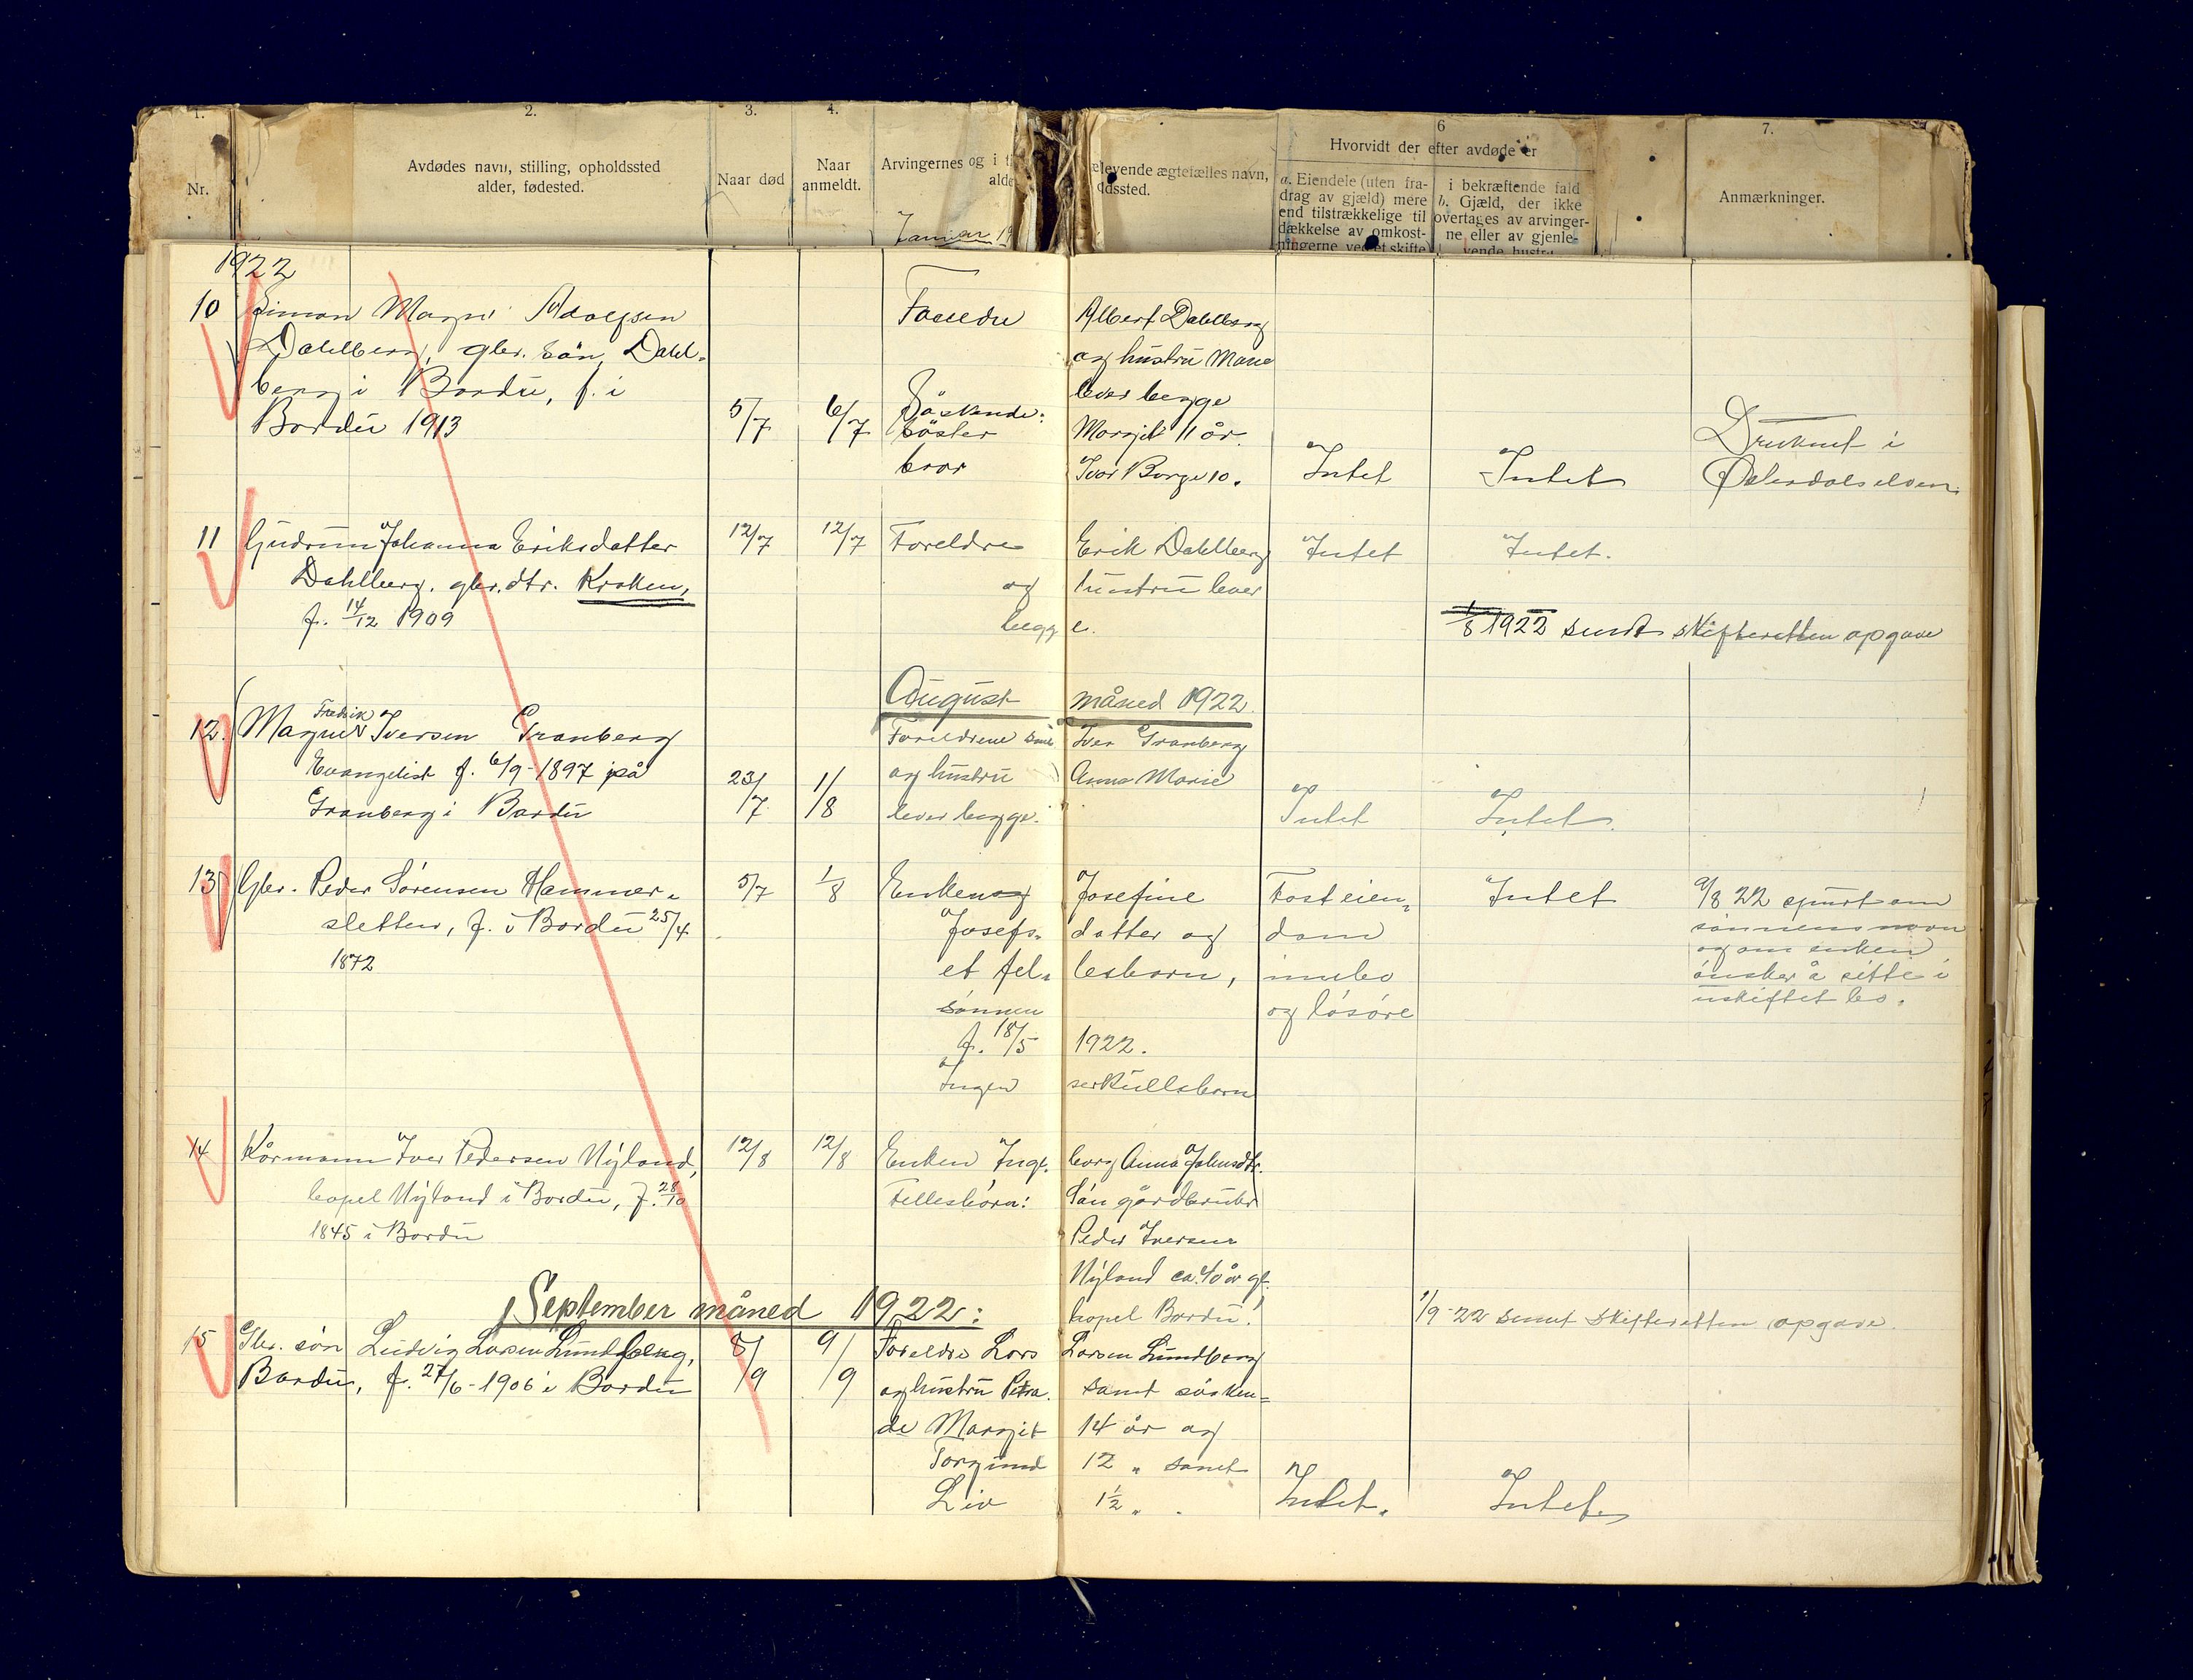 1.
2.
3.
4.
6
7.
Nr.
Avdødes navn, stilling, opholdssted
alder, fødested.
Naar død
Naar
anmeldt.
Arvingernes og i
alde
levende ægtefælles navn,
dssted.
Hvorvidt der efter avdøde er
a. Eiendele (uten fra-
drag av gjæld) mere
end tilstrækkelige til
dækkelse av omkost-
ningerne ved et skifte
i bekræftende fald
b. Gjæld, der ikke
overtages av arvinger-
ne eller av gjenle-
vende hustru
Anmærkninger.
Januar 19
1922
10 Simon Magn Adolfsen
Dahlberg, gbr. sön, Dahl-
berg i Bardu, f. i
Bardu 1913
5/7
6/7
Foreldre
Albert Dahlberg
og hustru Marie
lever begge
Söskende:
söster
Margit 11 år.
bror
Ivar Borge 10.
Intet
Intet
Druknet i
Østerdalselven.
11 Gudrun Johanna Eriksdatter
Dahlberg, gbr. dtr. Kroken,
f. 14/12 1909
12/7
12/7
Foreldre Erik Dahlberg
og hustru lever
begge.
Intet
Intet.
1/8 1922 sendt skifteretten opgave
August måned 1922.
12. Magnus Fredrik Iversen Granberg
Evangelist f. 6/9-1897 på
Granberg i Bardu
23/7
1/8
Foreldrene Iver Granberg
og hustru Anna Marie
lever begge.
Intet
Intet.
13 Gbr. Peder Sörensen Hammer-
sletten, f. i Bardu 25/4
1872
5/7
1/8
Enken Josefine
Josefs- datter og
et fel- lesbarn,
sönnen
f. 18/5 1922.
Ingen særkullsbarn
Fast eien-
dom
innbo
og lösöre
Intet
9/8 22 spurt om
sönnens navn
og om enken
önsker å sitte i
uskiftet bo.
14 Kårmann Iver Pedersen Nyland,
bopel Nyland i Bardu, f. 28/10
1845 i Bardu
12/8
12/8
Enken Inge- borg Anna Johnsdtr.
Fellesbörn: Sön gårdbruker
Peder Iversen
Nyland ca. 40 år gl.
bopel Bardu!
1/9-22 sendt skifteretten opgave.
September måned 1922:
15 Gbr. sön Ludvig Larsen Lundberg,
Bardu, f. 27/6-1906 i Bardu
8/9
9/9
Foreldre Lars Larsen Lundberg
og hustru Petra. samt sösken-
de Margit 14 år og
Torgund 12 " samt
Liv 1½ "
Intet.
Intet.